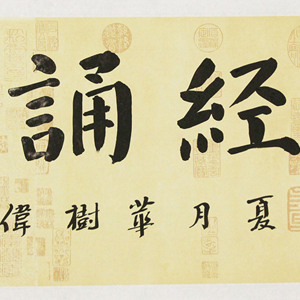 経誦
夏月華樹偉